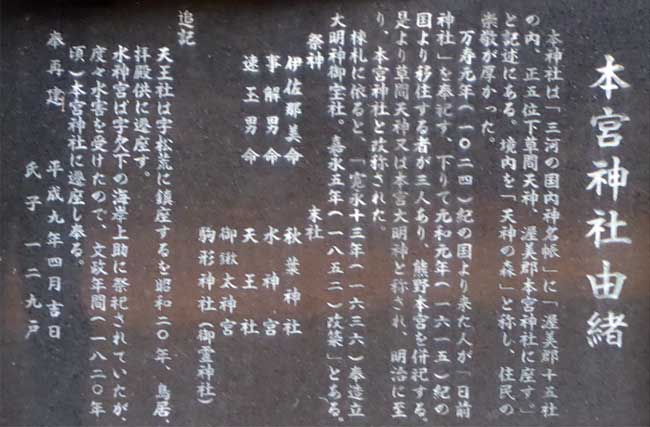 本宮神社由緒
本神社は「三河の国内神名帳」に「渥美郡十五社
の内、正五位下草間天神、渥美郡本宮神社に座す。」
と記述にある。境内を「天神の森」と称し、住民の
崇敬が厚かった。
万寿元年(一〇二四)紀の国より来た人が「日前
神社」を奉祀す、下りて元和元年(一六一五)紀の
国より移住する者が三人あり、熊野本宮を併祀する。
是より草間天神又は本宮大明神と称され、明治に至
り、本宮神社と改称された。
棟札に依ると、「寛永十三年(一六三六)奉造立
大明神御宝社。嘉永五年(一八五二)改築」とある。
祭神 末社
伊佐那美命 秋葉神社
事解男命 水神宮
速玉男命 天王社
御鍬太神宮
駒形神社(御霊神社)
追記
天王社は字松荒に鎮座するを昭和二〇年、鳥居、
拝殿供に遷座す。
水神宮ば字欠下の海岸上助に祭祀されていたが、
度々水害を受けたので、文政年間(一八二〇年
頃)本宮神社に遷座し奉る。
奉再建 平成九年四月吉日
氏子一二九戸